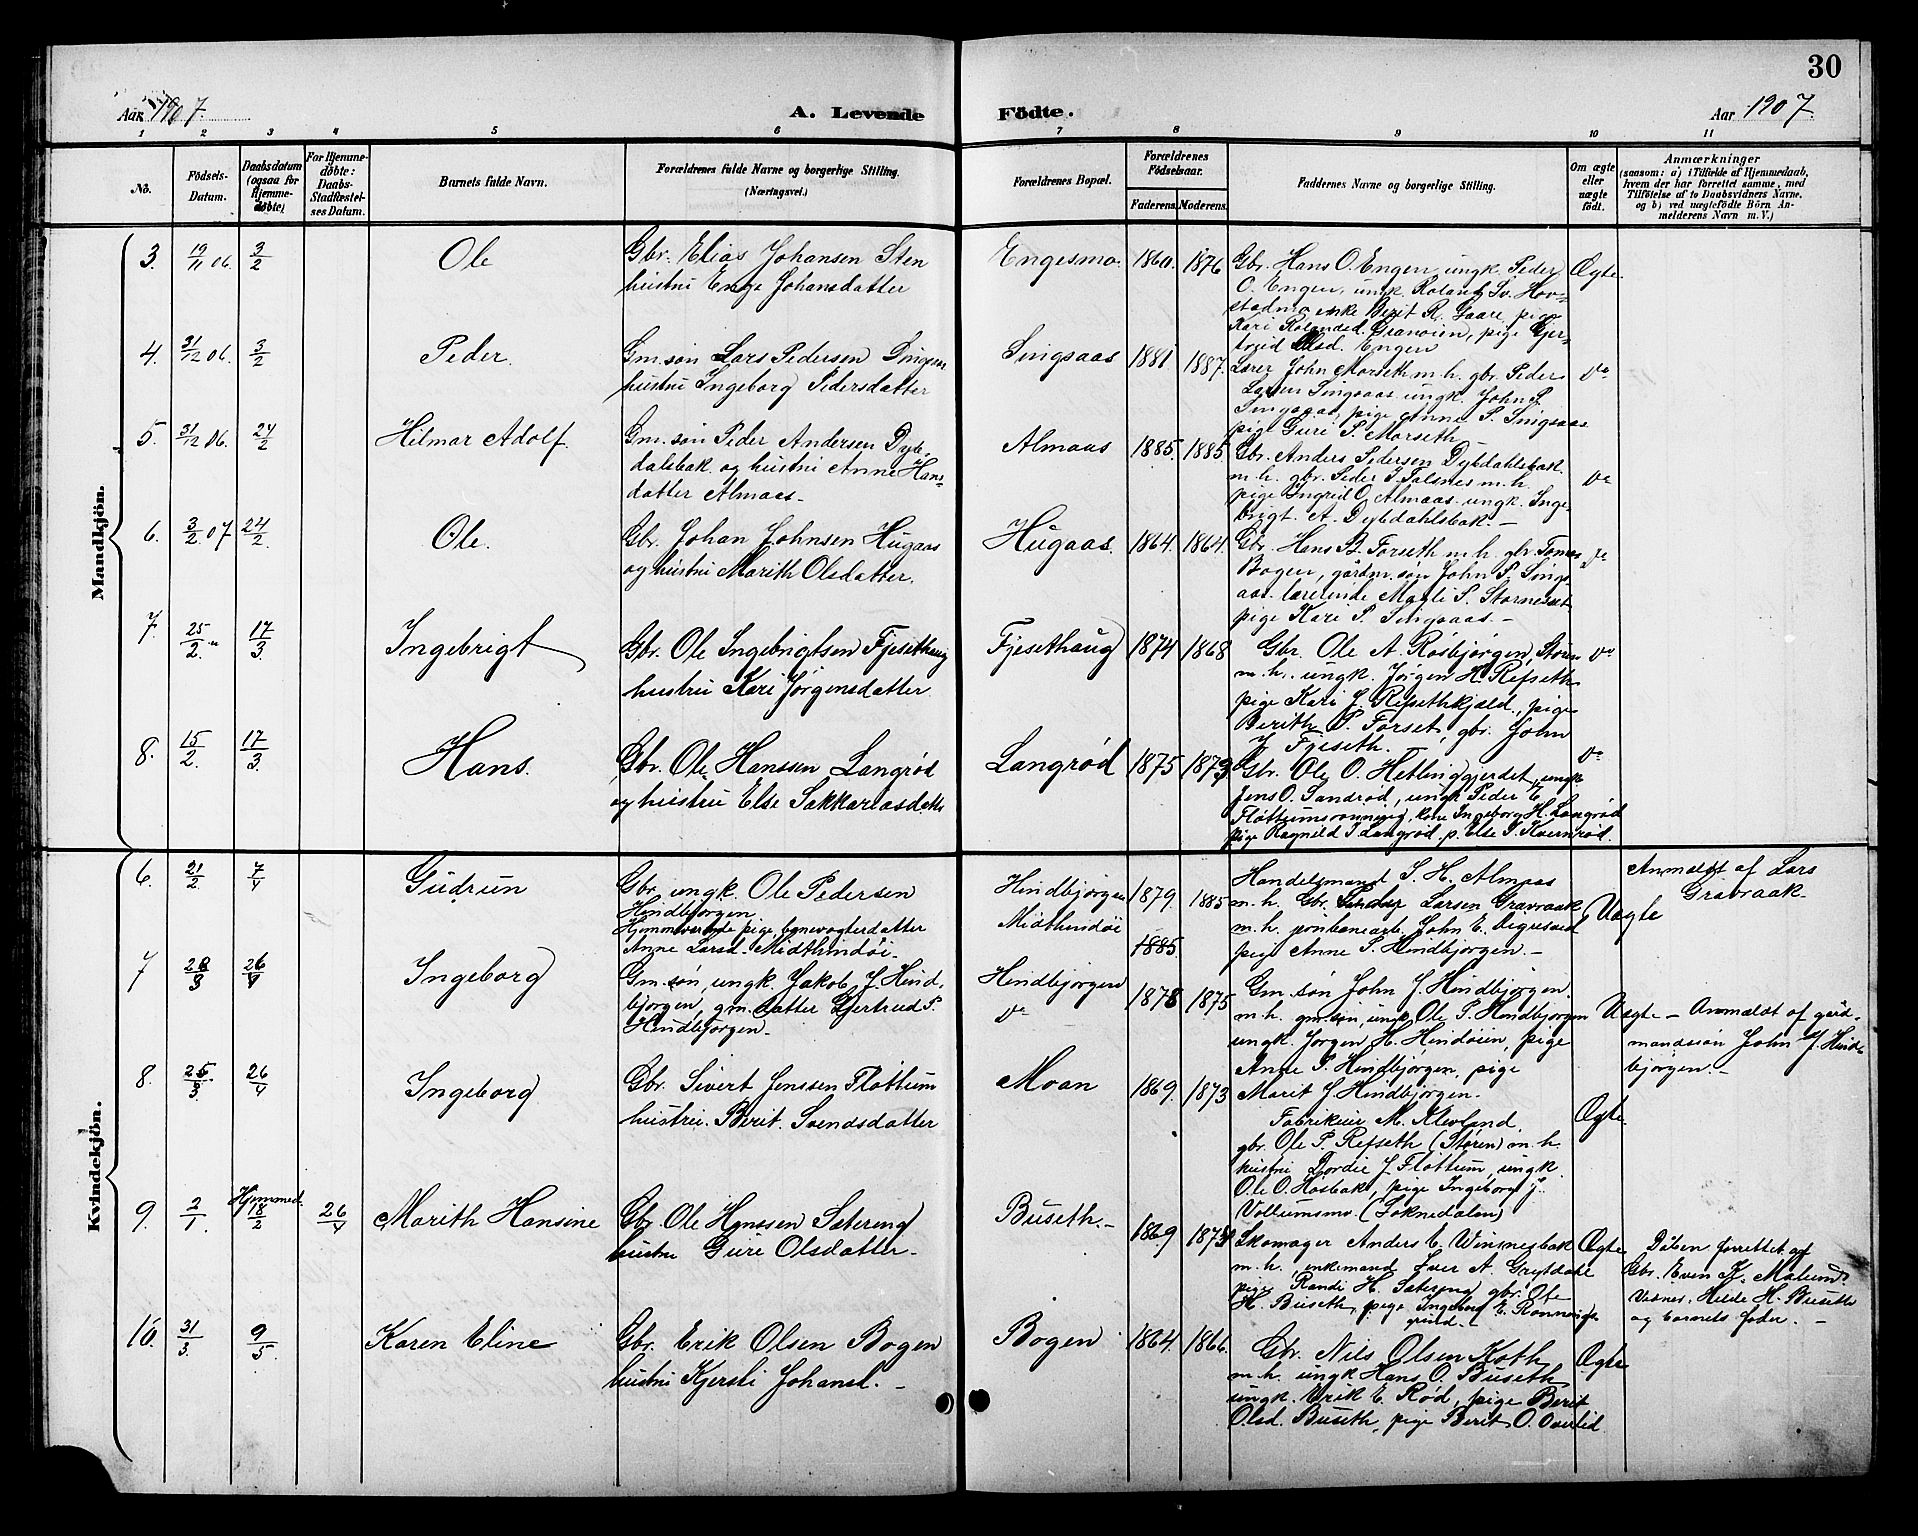 30
Aar 1907.
A. Levende
Födte.
Aar 1907.
1 2 3 4 5 6 7 8 9 10 11
No.
Födsels-
Datum.
Daabsdatum
(ogsaa for
Hjemme-
döbte)
For Hjemme-
döbte:
Daabs-
Stadfæstel-
ses Datum.
Barnets fulde Navn.
Forældrenes fulde Navne og borgerlige Stilling.
(Næringsvei.)
Forældrenes Bopæl.
Forældrenes
Födselsaar.
Faderens. Moderens.
Faddernes Navne og borgerlige Stilling.
Om ægte
eller
uægte
födt.
Anmærkninger
(saasom: a) i Tilfælde af Hjemmedaab,
hvem der har forrettet samme, med
Tilföielse af to Daabsvidners Navne,
og b) ved uægtefödte Börn An-
melderens Navn m. V.)
Mandkjön.
3. 19/11 06. 3/2 Ole
Gbr. Elias Johansen Sten
hustru Enge Johansdatter
Engesmo. 1860. 1876
Gbr. Hans O. Engen, ungk. Peder
O. Engen, ungk. Roland Sv. Hov-
stadmo, enke Berit R. Gaare, pige
Kari Rolandsd. Granøien, pige Gjer-
trud Olsd. Engen
Ægte
4. 31/12 06. 3/2 Peder.
Gm. søn Lars Pedersen Singsaas
hustru Ingeborg Pedersdatter
Singsaas 1881 1887.
Lærer John Morseth m. h. gbr. Peder
Larsen Singsaas ungk. John P.
Singsaas, pige Anne P. Singsaas
pige Guri P. Morseth
Do
5. 31/12 06. 24/2 Hilmar Adolf.
Gm. søn Peder Andersen Dyb-
dalsbak og hustru Anne Hans-
datter Almaas.
Almaas 1885. 1885
Gbr. Anders Pedersen Dybdahlsbak
m. h. gbr. Peder J. Folsnes m. h.
pige Ingrid O. Almaas. ungk. Inge-
brigt A. Dybdahlsbak.
Do
6. 3/2 07 24/2. Ole.
Gbr. Johan Johnsen Hugaas
og hustru Marith Olsdatter.
Hugaas. 1864. 1864.
Gbr. Hans B. Forseth m. h. gbr. Tomas
Bogen, gårdm. søn John P. Sings-
aas. lærerinde Magli S. Storneset
pige Kari P. Singsaas.
Do
7. 25/2. 17/3 Ingebrigt
Gbr. Ole Ingebrigtsen Fjesethaug
hustru Kari Jørgensdatter.
Fjesethaug 1874 1868
Gbr. Ole A. Røsbjørgen, Støren
m. h. ungk. Jørgen H. Refseth
pige Kari J. Refsethkjæld, pige
Berith P. Forset, gbr. John
J. Fjeseth.
Do
8. 15/2. 17/3. Hans.
Gbr. Ole Hanssen Langrød
og hustru Else Sakkariasdatte
Langrød 1875 1873
Gbr. Ole O. Hetlinggjerdet, ungk
Jens O. Sandrød, ungk Peder E.
Fløttumsrønning, kone Ingeborg H. Langrød
pige Ragnild J. Langrød. p. Else S. Kvernrød.
Do
Kvindekjön.
6. 21/2. 7/4 Gudrun
Gbr. ungk. Ole Pedersen
Hindbjørgen
Hjemmeværende pige, banevogterdatter
Anne Larsd. Midthindøi.
Hindbjørgen
Midthindøi
1879. 1885
1885.
Handelsmand S. H. Almaas
m. h. Gbr. Larsen Gravraak
m. h. jernbanearb. John E. Vegreseed
pige Anne P. Hindbjørgen.
Uægte
Anmeldt af Lars
Gravraak.
7 28/3 26/4 Ingeborg
Gm. søn, ungk. Jakob J. Hind-
bjørgen, gm. datter Gjertrud P.
Hindbjørgen.
Hindbjørgen
Do
1878 1875
Gm. søn John J. Hindbjørgen.
m. h. gm. søn, ungk Ole P. Hindbjørgen
ungk. Jørgen H. Hindøien, pige
Ande P. Hindbjørgen, pige
Marit J. Hindbjørgen.
Uægte
Anmeldt af gård-
mandssøn John J. Hind-
bjørgen.
8. 25/3 26/4 Ingeborg
Gbr. Sivert Jenssen Fløttum
hustru. Berit. Svendsdatter
Moan 1869. 1873
Fabrikeier M. Klevland.
gbr. Ole P. Refseth (Støren) m. h.
hustru Dordie J. Fløttum, ungk.
Ole O. Høsbak, pige Ingeborg J.
Vollumsmo. (Soknedalen)
Ægte
9. 2/1. Hjemmed. 18/2 26/4 Marith Hansine
Gbr. Ole Hanssen Sætereng
hustru Guri Olsdatter.
Buseth. 1869 1873
Skomager Anders E. Winsnesbak
m. h. enkemand Iver A. Grytdale
pige Randi H. Sætereng gbr. Ole
H. Buseth, pige Ingeborg E. Rønnevigs
Ægte
Dåben forrettet af
Gbr. Even K. Malum.
Vidner. Helde H. Buseth
og barnets fader.
10. 31/3. 9/5. Karen Eline
Gbr. Erik Olsen Bogen
hustru Kjersti Johansd.
Bogen 1864. 1866.
Gbr. Nils Olsen Koth
m. h. ungk Hans O. Buseth
ungk. Erik E. Rød, pige Berit
Olsd. Buseth, pige Berit O. Overlid
Ægte